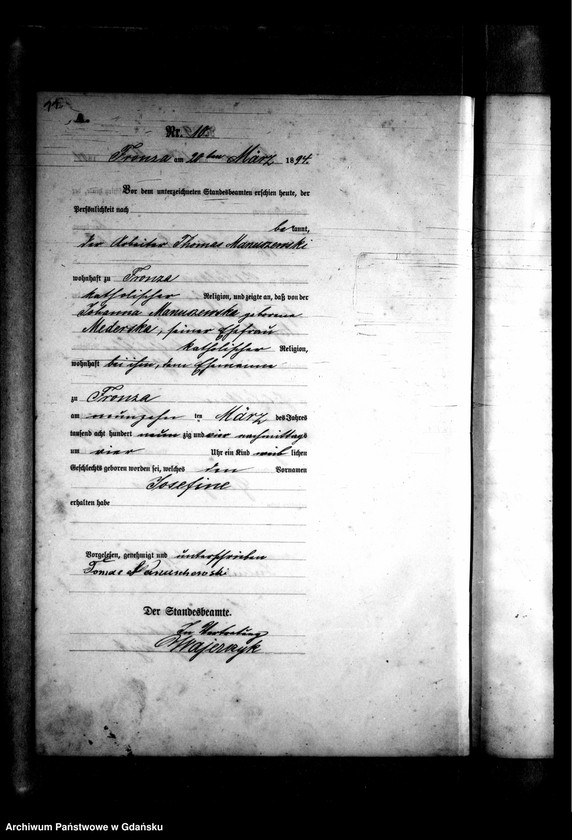 Nr. 10.
Tronza am 20ten März 1894.
Vor dem unterzeichneten Standesbeamten erschien heute, der
Persönlichkeit nach
bekannt,
der Arbeiter Thomas Manuszewski
wohnhaft zu Tronza
katholischer Religion, und zeigte an, daß von der
Johanna Manuszewska geborene
Mederska, seiner Ehefrau
katholischer Religion,
wohnhaft bei ihm, dem Ehemanne
zu Tronza
am neunzehn ten März des Jahres
tausend acht hundert neunzig und vier nachmittags
um vier Uhr ein Kind weiblichen
Geschlechts geboren worden sei, welches den Vornamen
Josefine
erhalten habe
Vorgelesen, genehmigt und unterschrieben
Der Standesbeamte.
In Vertretung
Archiwum Państwowe w Gdańsku